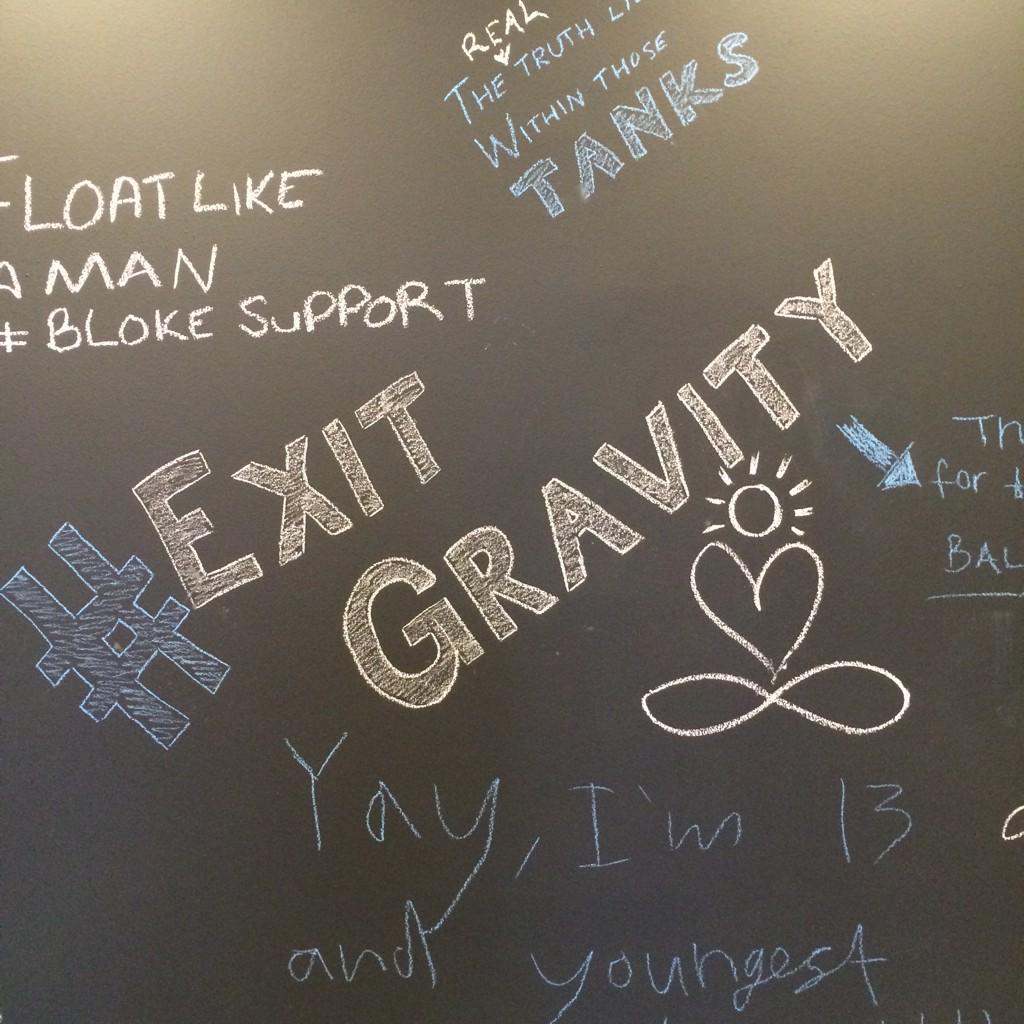 REAL
THE TRUTH
WITHIN THOSE
TANKS
FLOAT LIKE
A MAN
# BLOKE SUPPORT
#EXIT
GRAVITY
for
Yay, I'm 13
and youngest